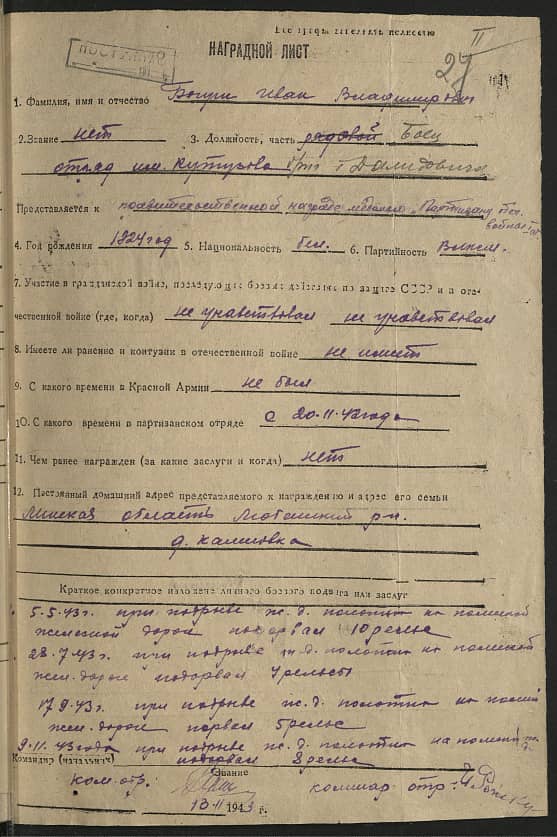 НАГРАДНОЙ ЛИСТ
27
1. Фамилия, имя и отчество Иван Владимирович
2. Звание нет 3. Должность, часть рядовой Боец
отряд им. Кутузова
Представляется к правительственной награде медалью „Партизану От. войны"
4. Год рождения 1924 год 5. Национальность бел. 6. Партийность
7. Участие в гражданской войне, последующих боевых действиях по защите СССР и в оте-
чественной войне (где, когда) не участвовал не участвовал
8. Имеете ли ранение и контузии в отечественной войне не имеет
9. С какого времени в Красной Армии не был
10. С какого времени в партизанском отряде с 20.11.42 года
11. Чем ранее награжден (за какие заслуги и когда) нет
12. Постоянный домашний адрес представляемого к награждению и адрес его семьи
Минская область р-н.
д. Калиновка
Краткое конкретное изложение личного боевого подвига или заслуг
5.5.43г. при подрыве ж.д. полотна на
железной дороги подорвал 10 рельс
28.7.43г. при подрыве ж.д. полотна на
жел. дороге подорвал 4 рельсы
17.9.43г. при подрыве ж.д. полотна на
жел. дороге 5 рельс
9.11.43 года при подрыве ж.д. полотна на
Командир (начальник) подорвал 8 рельс
Звание
ком. отр. комиссар отр.
194 г.